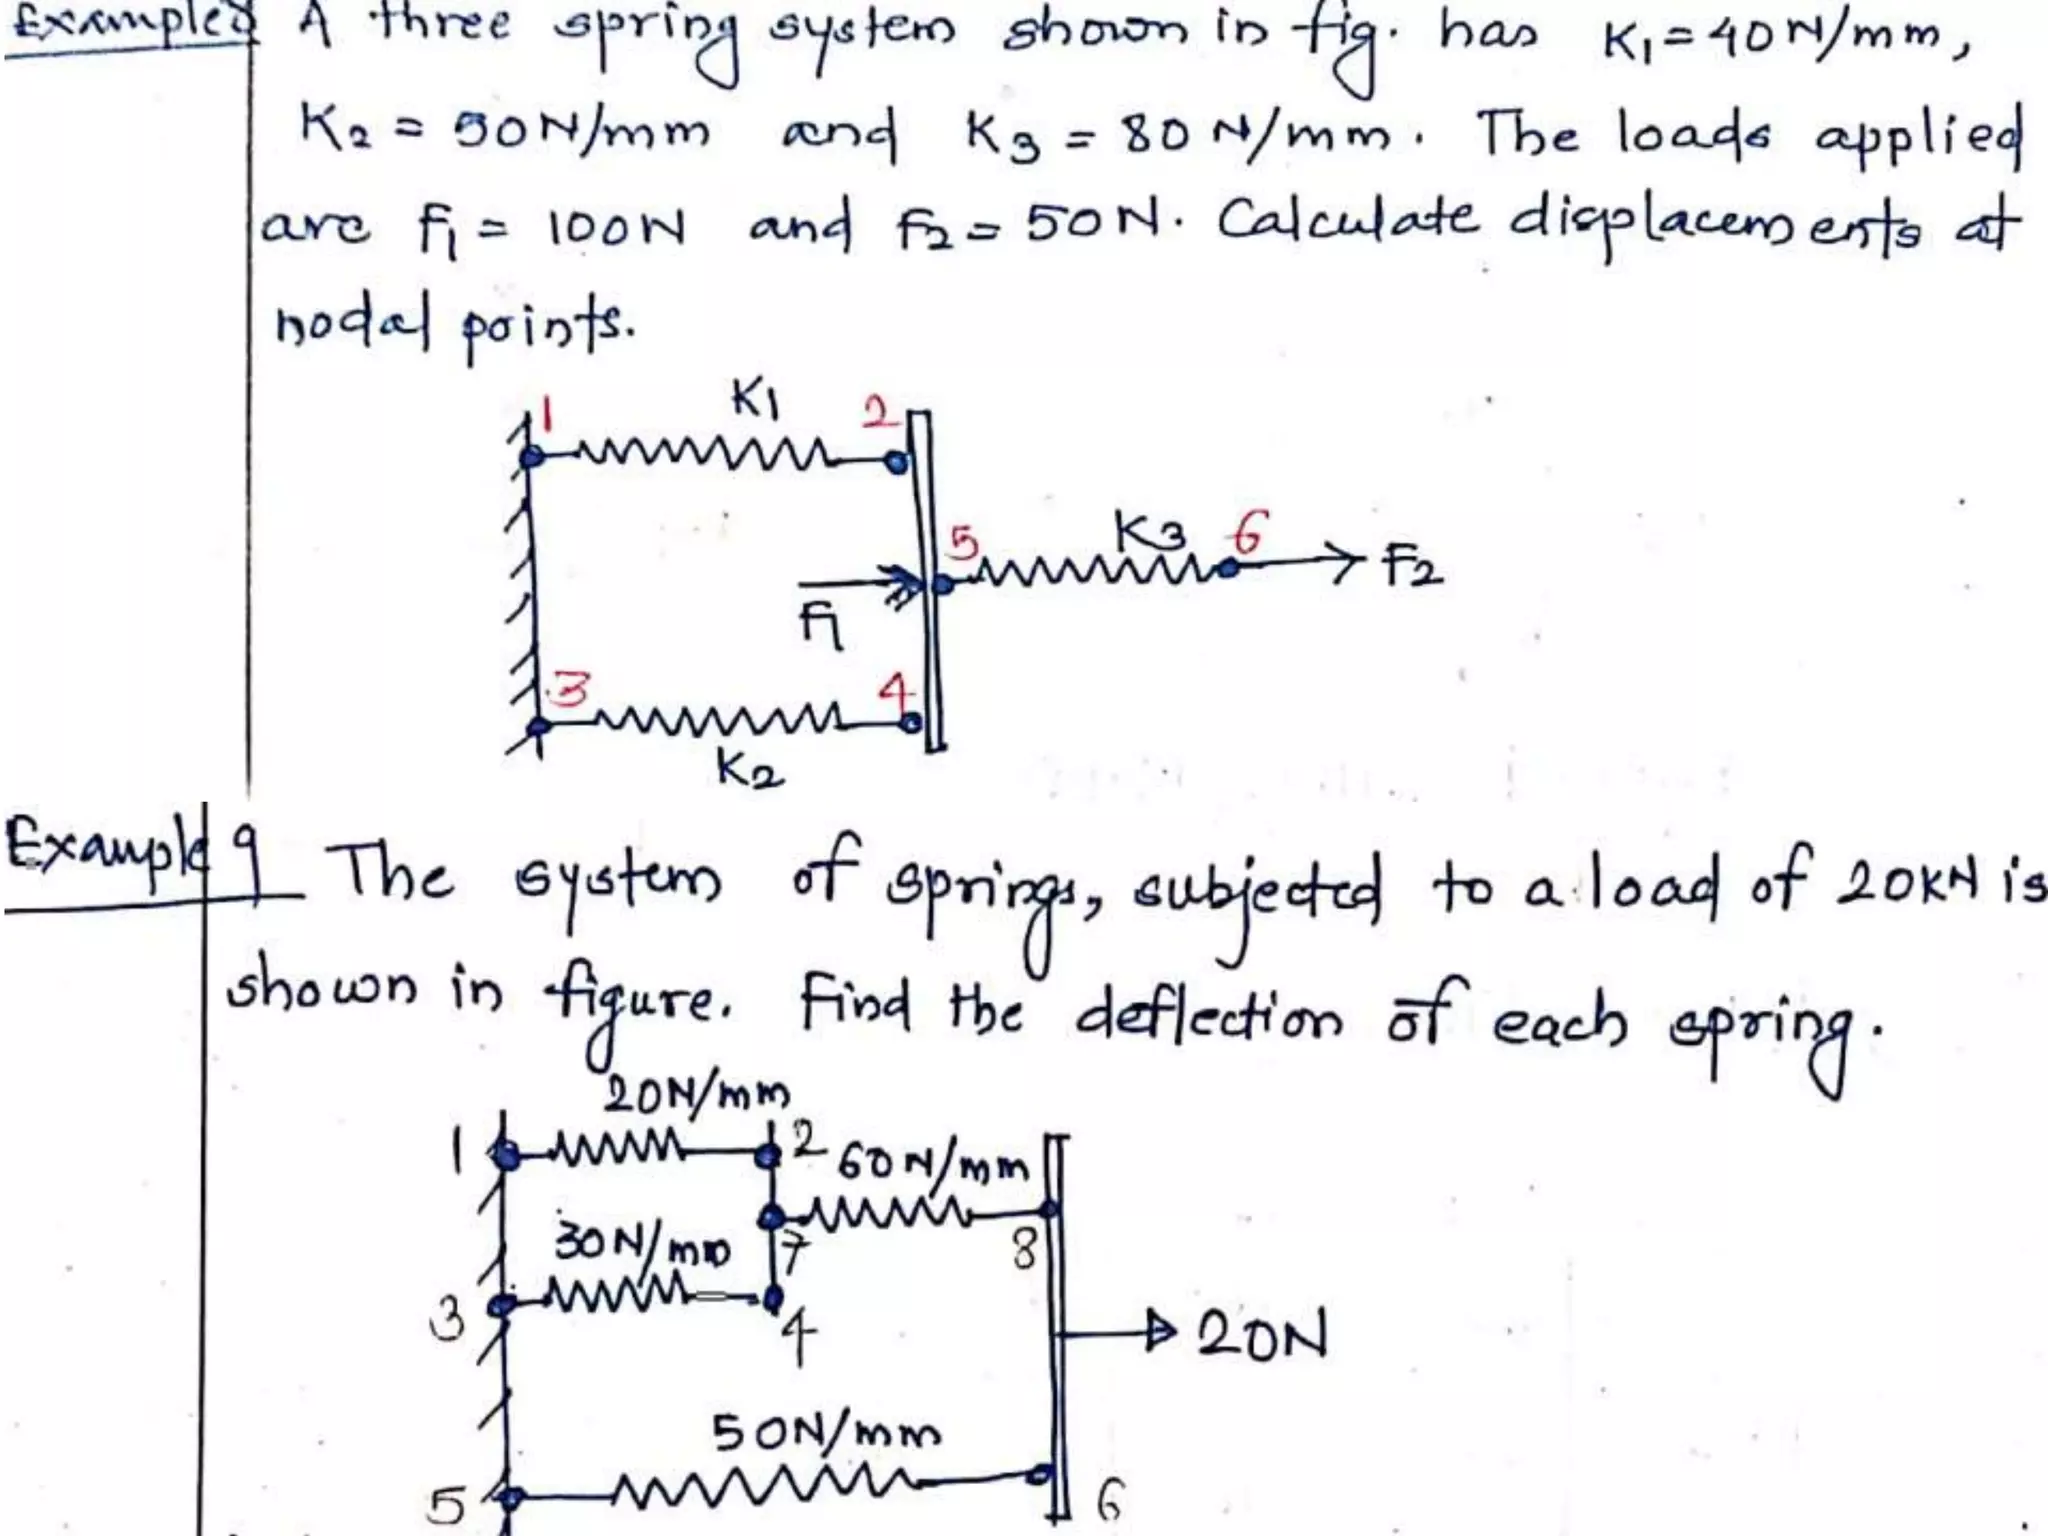 Example 8 A three spring system shown in fig. has K1=40N/mm,
K2 = 50N/mm and K3 = 80 N/mm. The loads applied
are F1 = 100N and F2 = 50N. Calculate displacements at
nodal points.
K1
1 2
5 K3 6
F2
F1
3 4
K2
Example 9 The system of springs, subjected to a load of 20KN is
shown in figure. Find the deflection of each spring.
20N/mm
1 2 60N/mm
30N/mm 7 8
3 4
20N
50N/mm
5 6